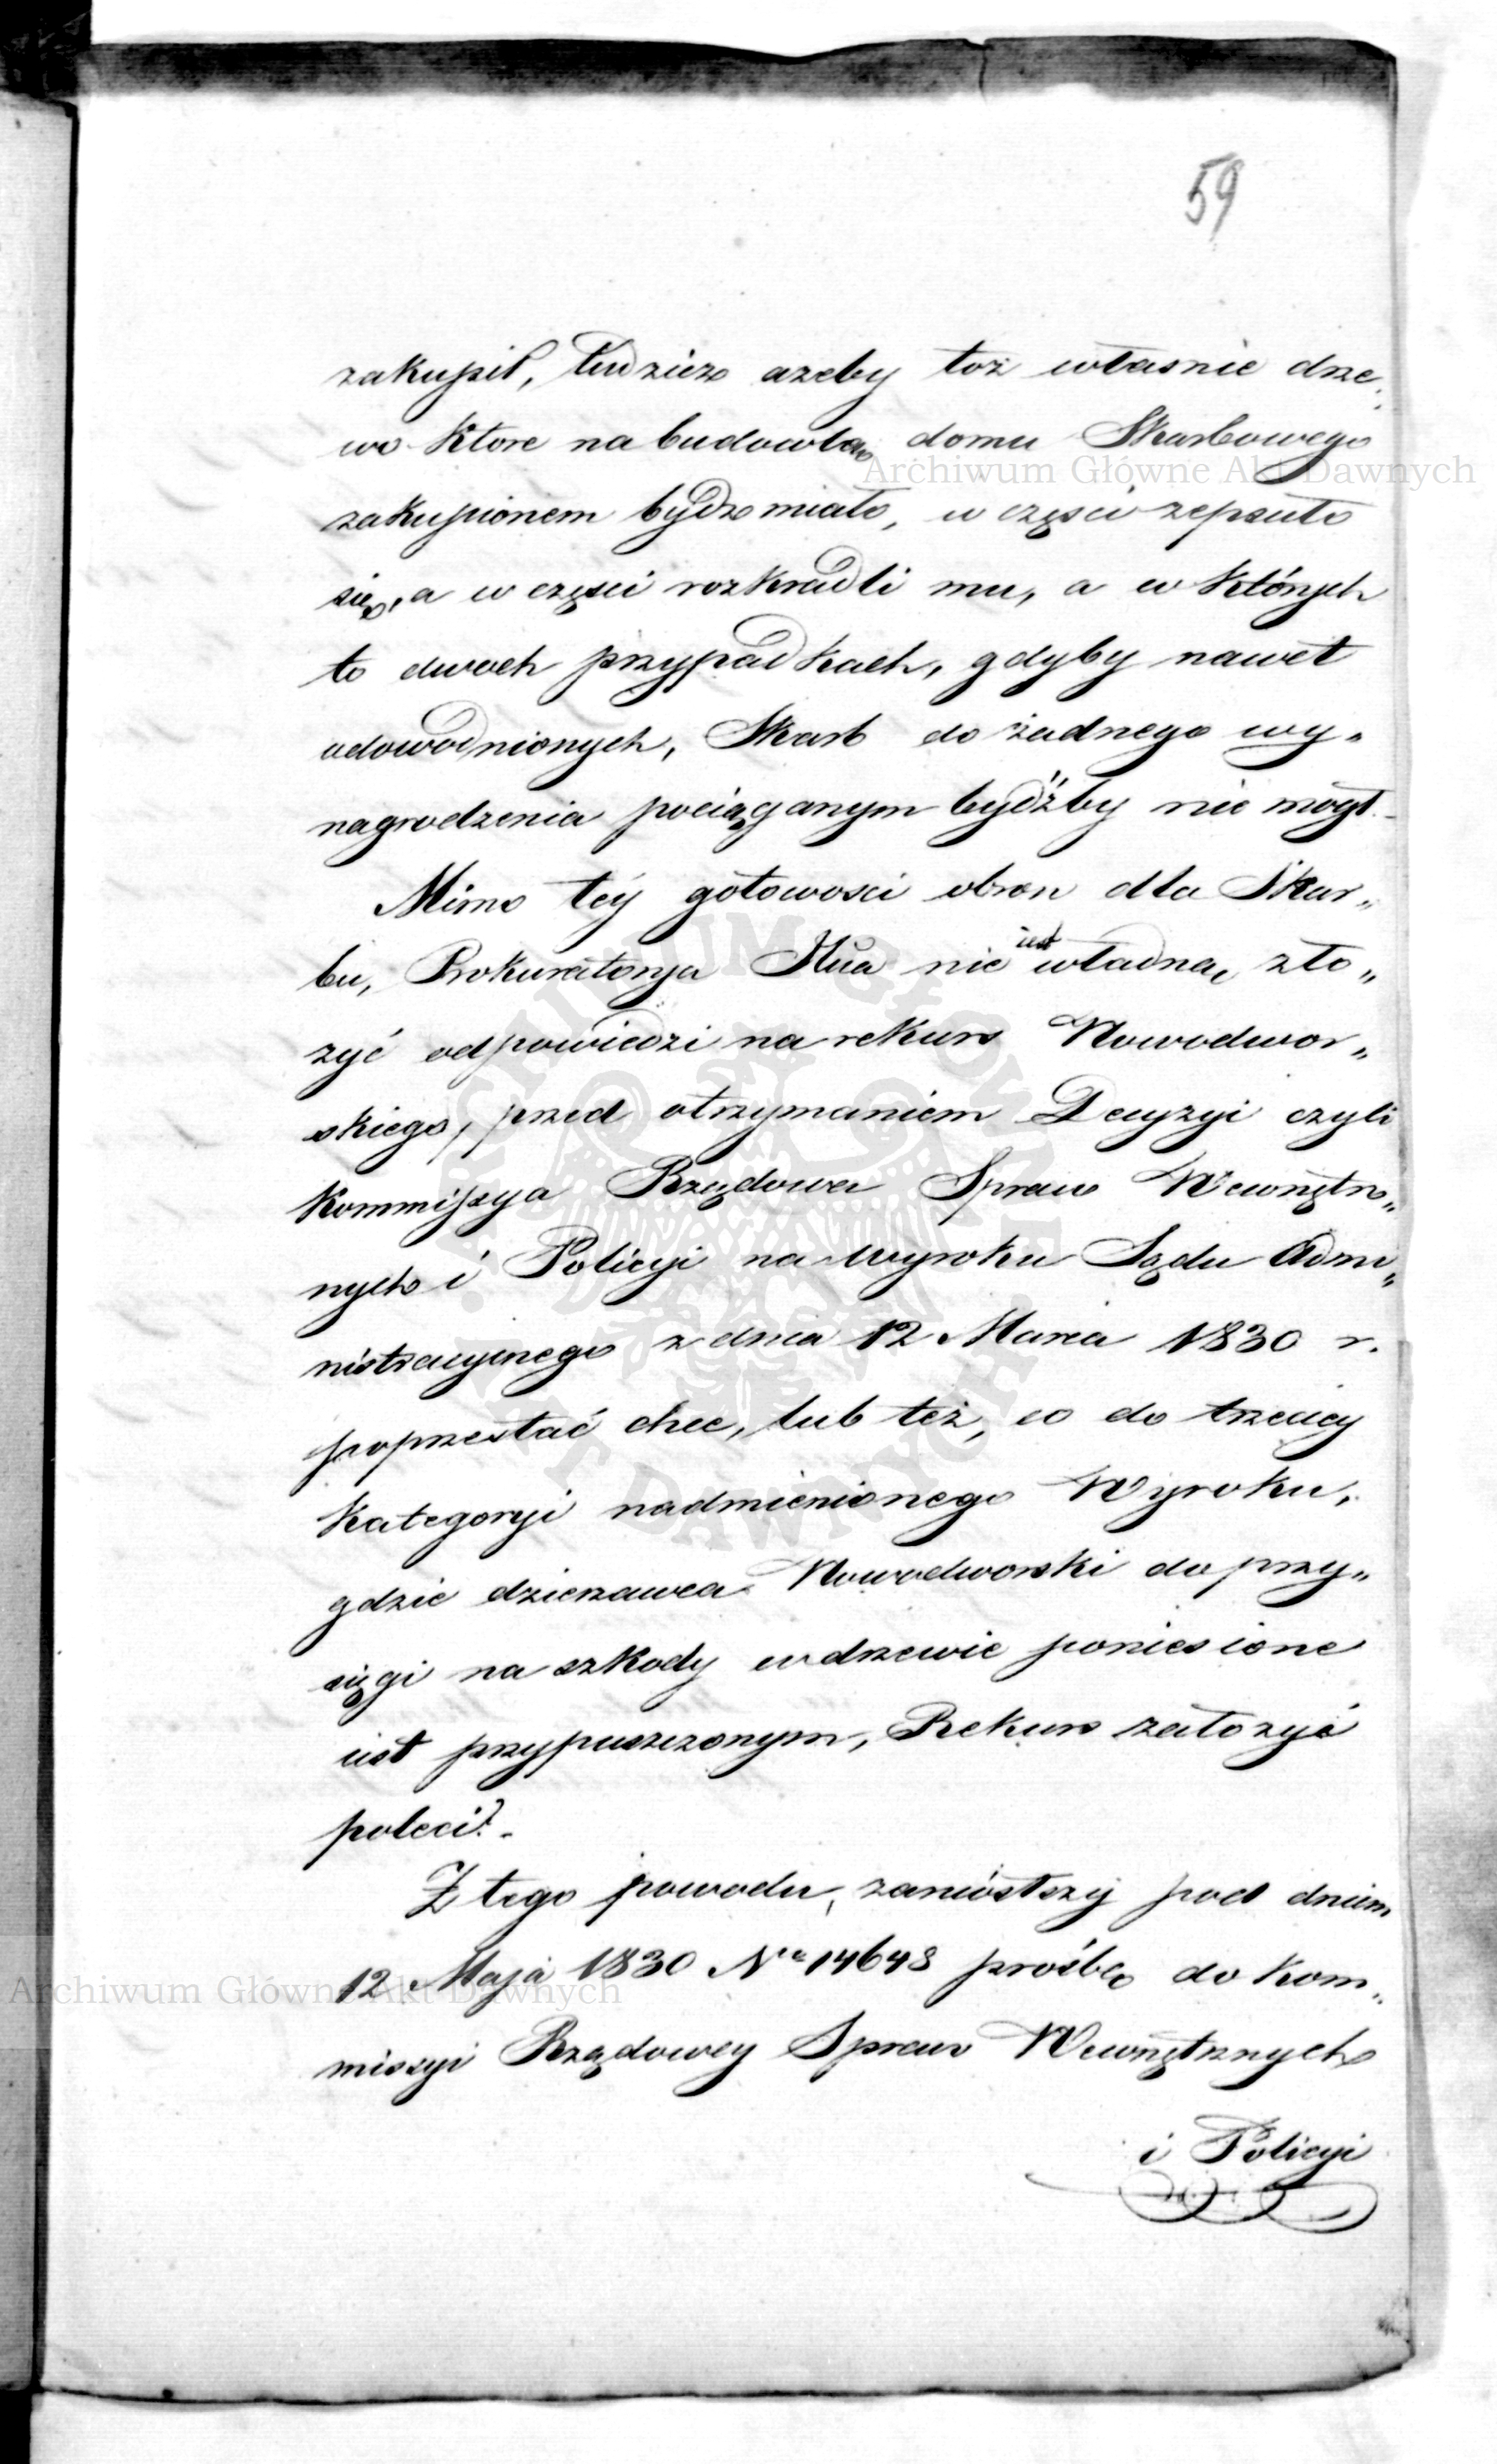 59
zakupił, tudzież ażeby toż własnie drze„
wo które na budowlę domu Skarbowego
zakupionem bydź miało, w części zepsuło
się, a w części rozkradli mu, a w których
to dwoch przypadkach, gdyby nawet
udowodnionych, Skarb do żadnego wy„
nagrodzenia pociąganym bydźby nie mógł.
Mimo téy gotowosci obron dla Skar„
bu, Prokuratorya nie iest władną, zło„
żyć odpowiedzi na rekurs Nowodwor„
skiego, przed otrzymaniem Decyzyi czyli
Kommissya Rządowa Spraw Wewnętrz„
nych i Policyi na Wyroku Sądu Admi„
nistracyinego z dnia 12 Marca 1830 r.
poprzestać chce, lub też, co do trzeciey
Kategoryi nadmienionego Wyroku,
gdzie dzierzawca Nowodworski do przy„
sięgi na szkody w drzewie poniesione
iest przypuszczonym, Rekurs założyć
poleci?.
Z tego powodu, zaniósłszy pod dniem
12 Maja 1830 No 14648 prośbę do Kom„
missyi Rządowey Spraw Wewnętrznych
i Policyi
Archiwum Główne Akt Dawnych
Archiwum Główne Akt Dawnych
ARCHIWUM GŁÓWNE AKT DAWNYCH